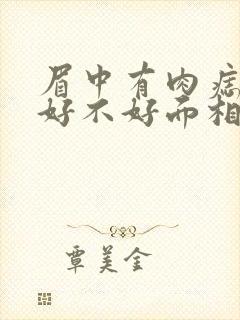 眉中有肉痣
好不好而相
覃美金